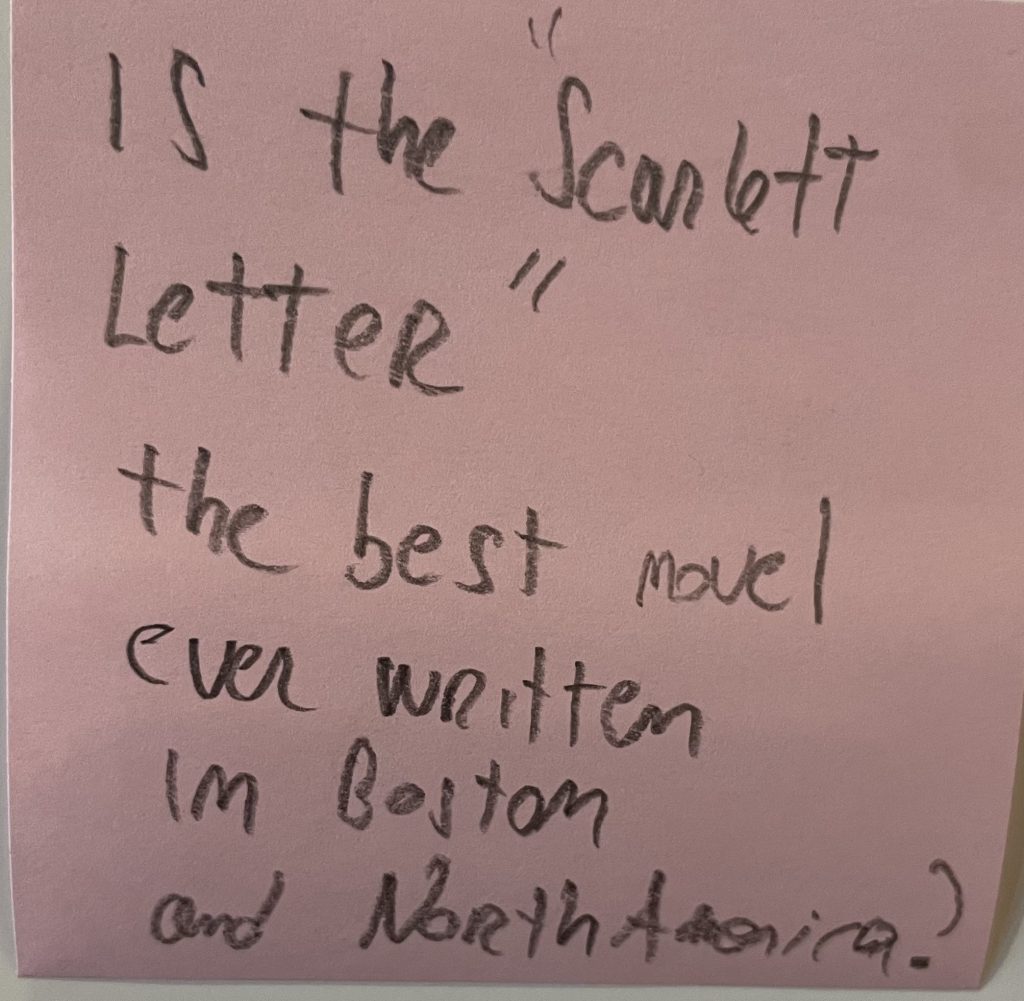 Is the "Scarlett
Letter"
the best novel
ever written
in Boston
and North America?